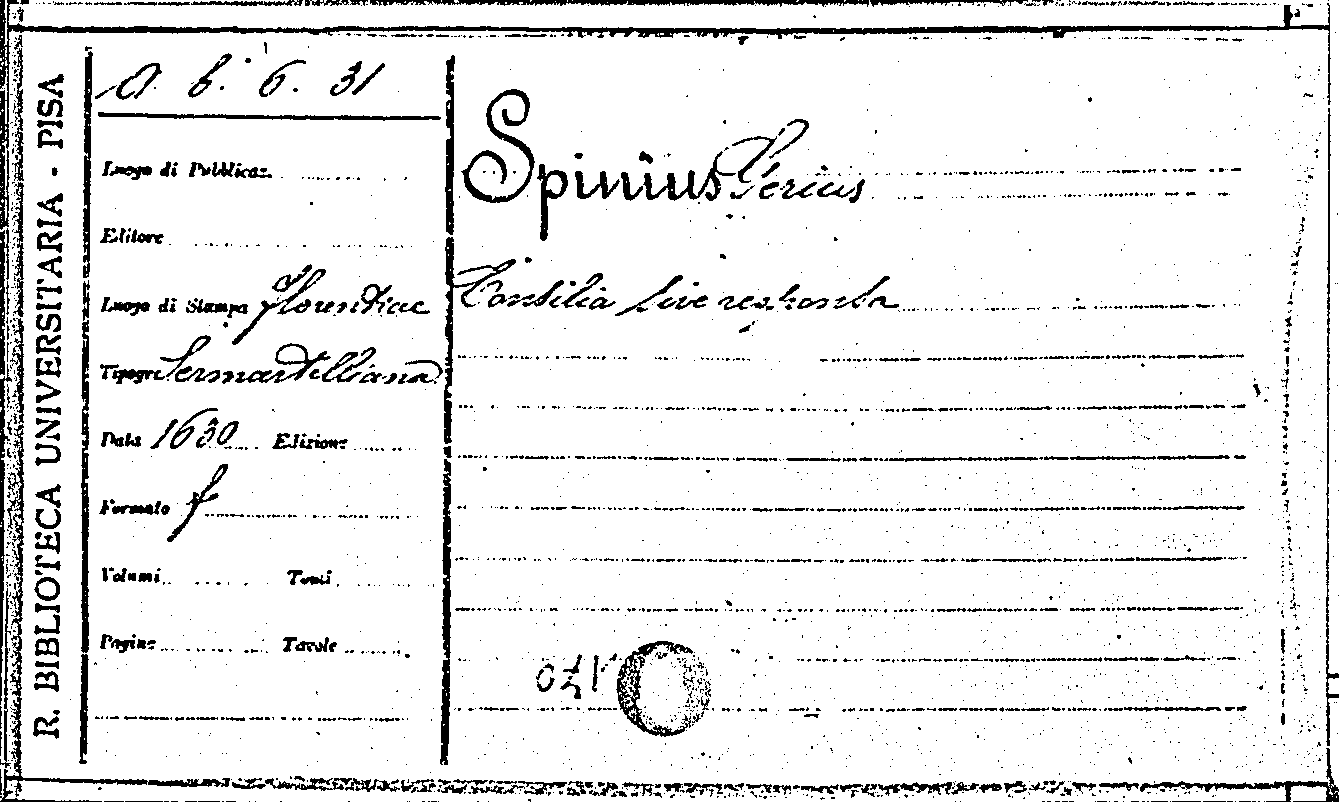 R. BIBLIOTECA UNIVERSITARIA - PISA
A. b. 6. 31
Luogo di Pubblicaz.
Editore
Luogo di Stampa Florentiae
Tipogr. Sermartelliana
Data 1630 Edizione
Formato f
Volumi Tomi
Pagine Tavole
Spinius Gerius
Consilia sive responsa